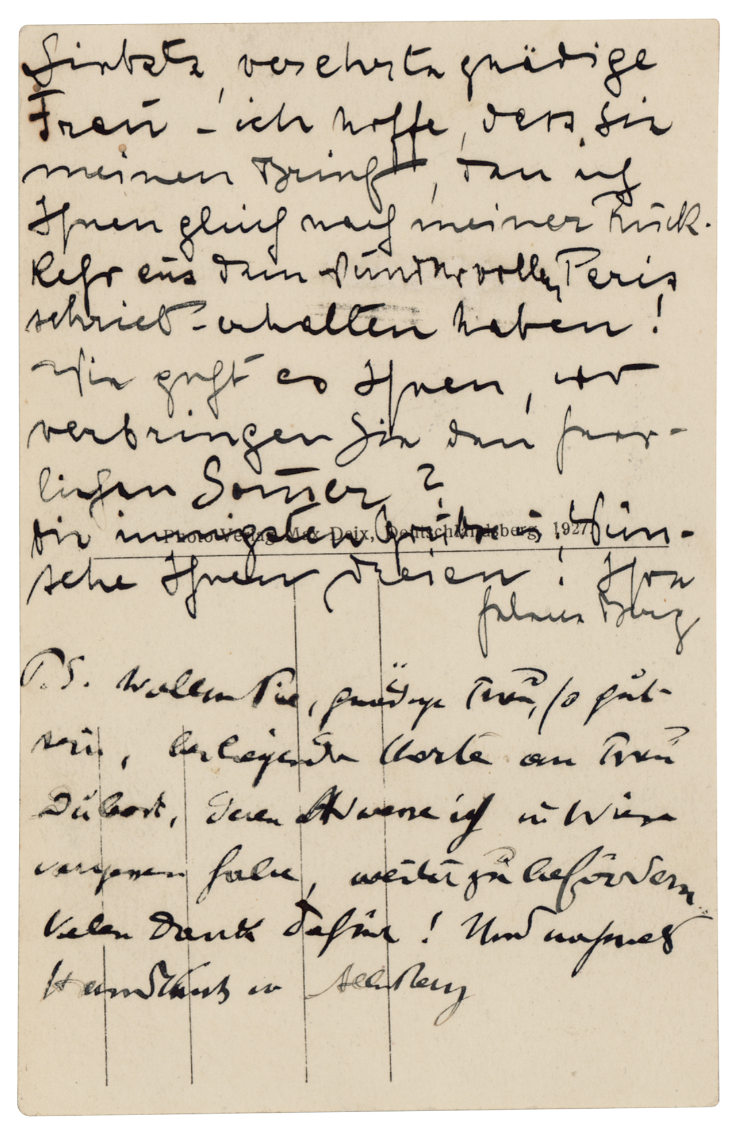 Liebste, verehrte gnädige
Frau – ich hoffe, dass Sie
meinen Brief, den ich
Ihnen gleich nach meiner Rück-
kehr aus dem wundervollen Paris
schrieb – erhalten haben!
Wie geht es Ihnen, wo
verbringen Sie den herr-
lichen Sommer?
Die innigsten Grüße u. Wün-
sche Ihnen dreien! Ihre
Helene Berg
Photo-Verlag Max Deix, Deutschlandsberg, 1927
P.S. Wollen Sie, gnädige Frau, so gut
sein, beiliegende Karte an Frau
deren Adresse ich in Wien
vergessen habe, weiter zu befördern
Vielen Dank dafür! Und nochmals
Handkuss v Alban Berg